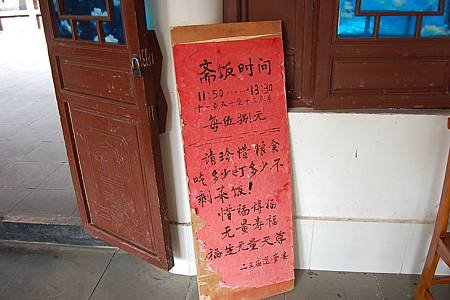 斋饭时间
11:50……13:30
十一点五十至十三点半
每位捌元
请珍惜粮食.
吃多少打多少.不
剩菜饭!
惜福得福
无量寿福
福生无量天尊